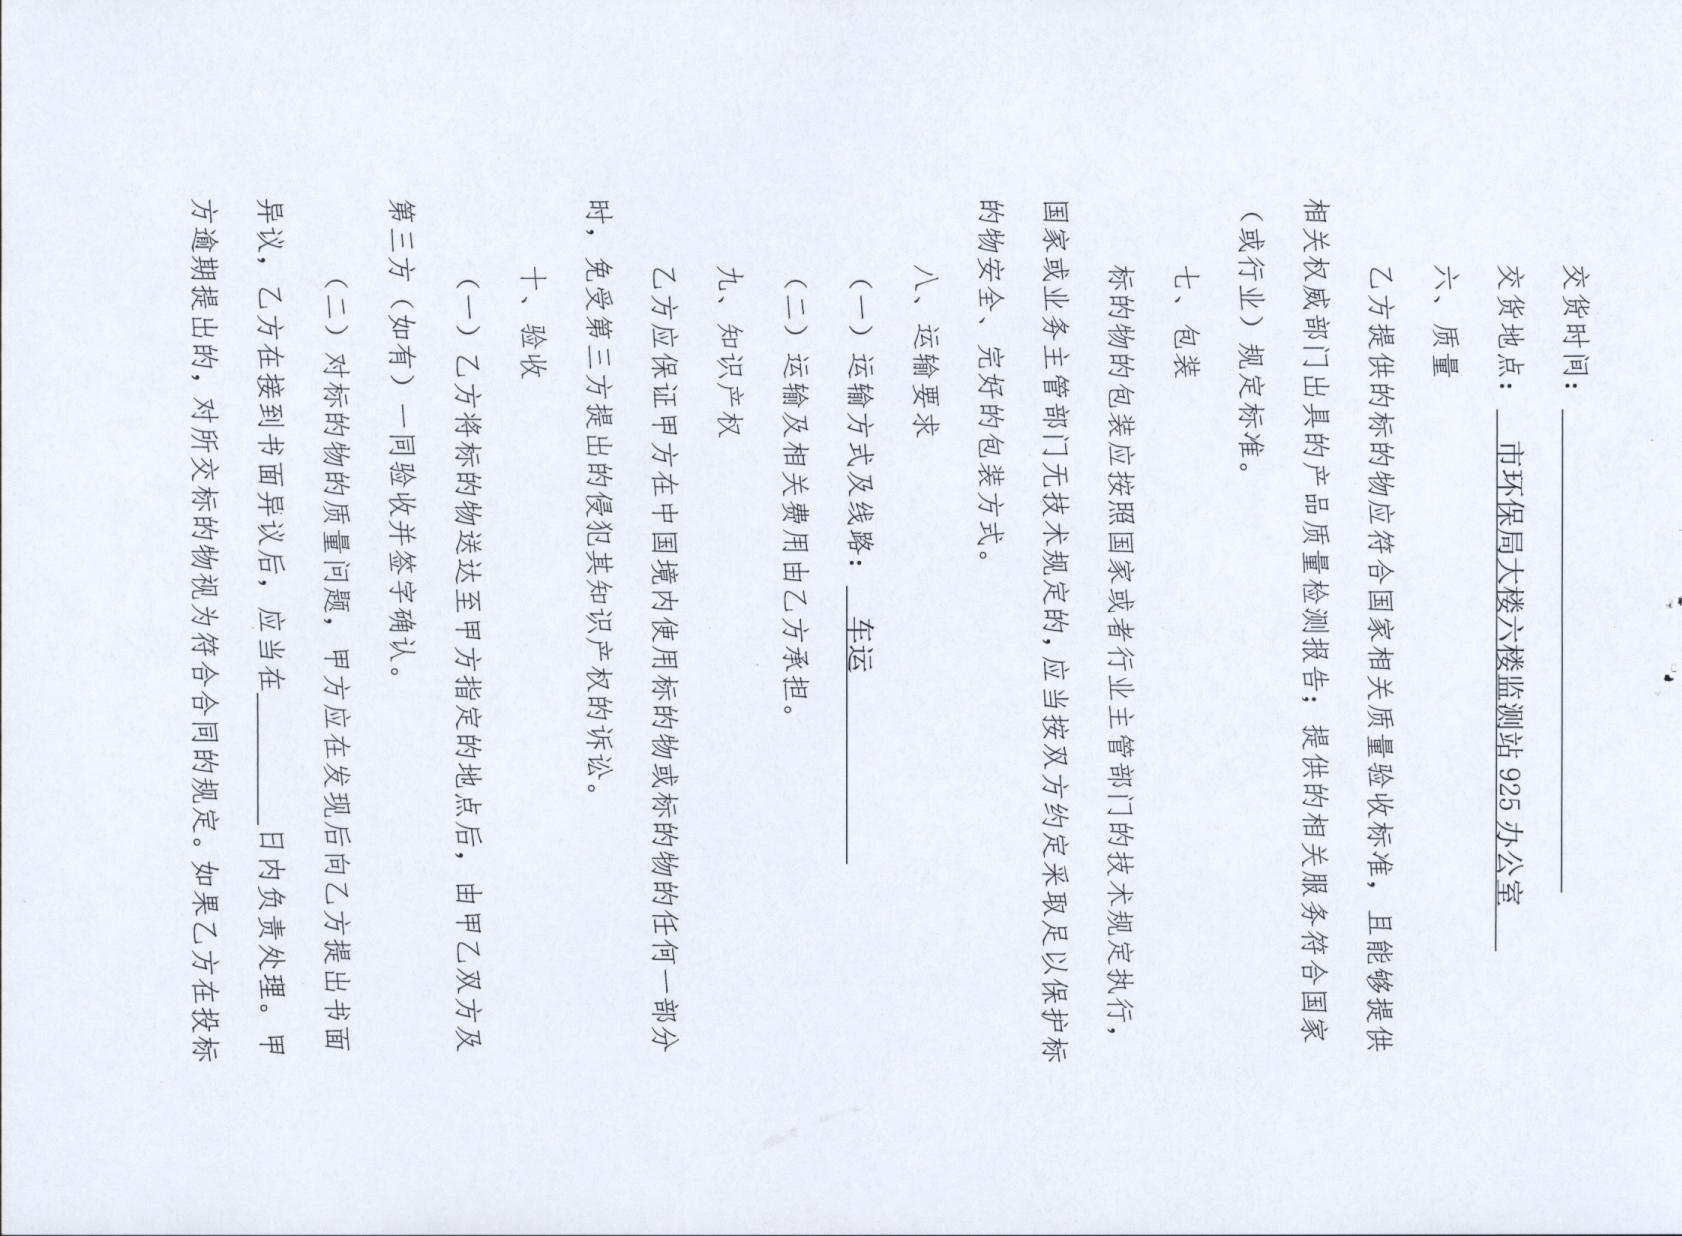 交货时间：
交货地点： 市环保局大楼六楼监测站 925 办公室
六、质量
乙方提供的标的物应符合国家相关质量验收标准，且能够提供
相关权威部门出具的产品质量检测报告；提供的相关服务符合国家
（或行业）规定标准。
七、包装
标的物的包装应按照国家或者行业主管部门的技术规定执行，
国家或业务主管部门无技术规定的，应当按双方约定采取足以保护标
的物安全、完好的包装方式。
八、运输要求
（一）运输方式及线路： 车运
（二）运输及相关费用由乙方承担。
九、知识产权
乙方应保证甲方在中国境内使用标的物或标的物的任何一部分
时，免受第三方提出的侵犯其知识产权的诉讼。
十、验收
（一）乙方将标的物送达至甲方指定的地点后，由甲乙双方及
第三方（如有）一同验收并签字确认。
（二）对标的物的质量问题，甲方应在发现后向乙方提出书面
异议，乙方在接到书面异议后，应当在________日内负责处理。甲
方逾期提出的，对所交标的物视为符合合同的规定。如果乙方在投标